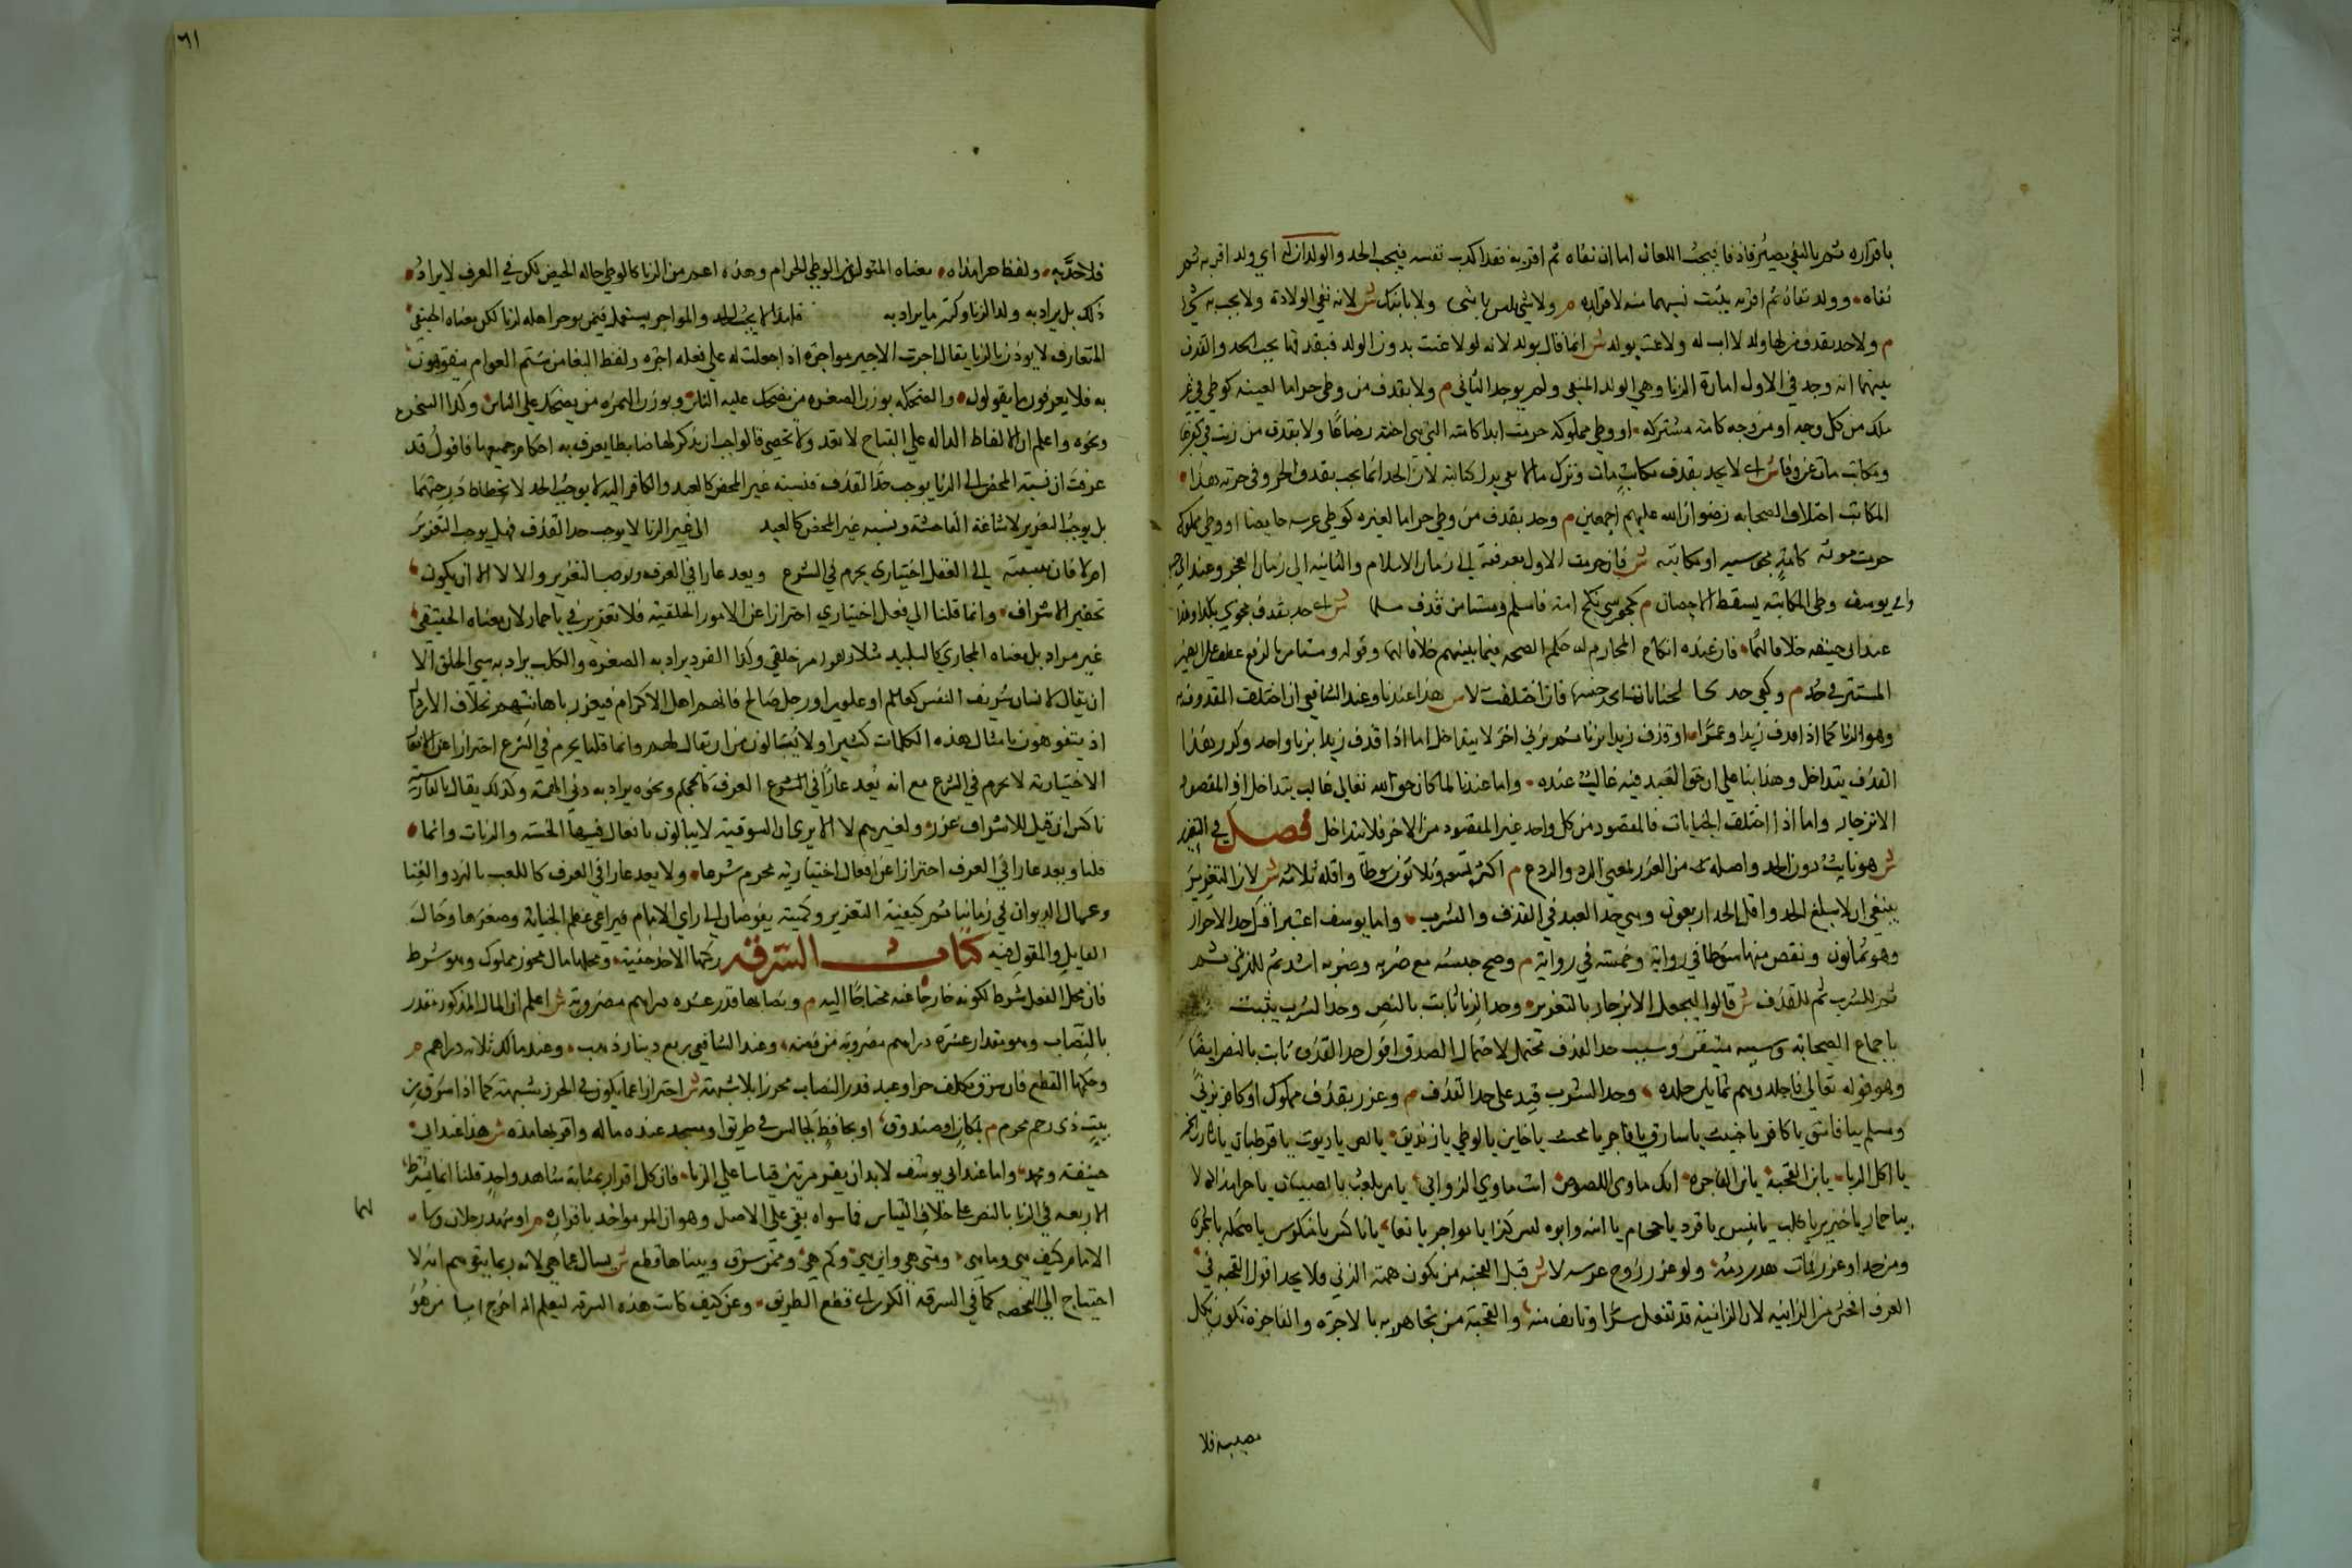 باقراره ثم بالنفي يصير قاذفا فيجب اللعان اما ان نفاه ثم اقر به فقد اكذب نفسه فيجب الحد والولد ان له اي ولد اقر به ثم
نفاه وولد نفاه ثم اقر به يثبت نسبهما منه لاقراره م ولا شي بليس بابني ولا بابنك ش لانه نفي الولادة ولا يجب به شي
م ولا حد بقذف من لها ولد لا اب له ولا عنت بولد ش انما قال بولد لانه لو لاعنت بدون الولد فبقذفها يجب الحد والفرق
بينهما انه وجد في الاول امارة الزنا وهي الولد المنفي ولم يوجد الثاني م ولا بقذف من وطي حراما لعينه كوطي في غير
ملك من كل وجه او من وجه كامة مشتركة او وطي مملوكة حرمت ابدا كامته التي هي اخته رضاعا ولا بقذف من زنت في كفرها
ومكاتب مات عن وفا ش اي لا يحد بقذف مكاتب مات وترك مالا يفي ببدل كتابته لان الحد انما يجب بقذف الحر وفي حرية هذا
المكاتب اختلاف الصحابة رضوان الله عليهم اجمعين م وحد بقذف من وطي حراما لغيره كوطي عرسه حايضا او وطي مملوكة
حرمت موقتة كامة مجوسية او مكاتبة ش فان حرمت الاول موقتة الى زمان الاسلام والثانية الى زمان العجز وعند
وابي يوسف وطي المكاتبة يسقط الاحصان م كمجوسي نكح امه فاسلم ومستامن قذف مسلما ش اي حد بقذف مجوسي
عند ابي حنيفه خلافا لهما فان عنده انكاح المحارم له حكم الصحة فيما بينهم خلافا لهما وقوله ومستامن بالرفع عطف على الضمير
المستتر في حد م وكفى حد لجنايات اتحد جنسها فان اختلفت لا ش هذا عندنا وعند الشافعي ان اختلف المقذوف
وهو الزنا كما اذا قذف زيدا وعمرا او قذف زيدا بزنا ثم بزنى اخر لا يتداخل اما اذا قذف زيدا بزنا واحد وكرر هذا
القذف يتداخل وهذا بنا على ان حق العبد فيه غالب عنده واما عندنا لما كان حق الله تعالى غالب يتداخل اذ المقصود
الانزجار واما اذا اختلف الجنايات فالمقصود من كل واحد غير المقصود من الاخر فلا يتداخل فصل في التعزير
ش هو تاديب دون الحد واصله من العزر بمعنى الرد والردع م اكثره تسعة وثلاثون سوطا واقله ثلاثة ش لان التعزير
ينبغي ان لا يبلغ الحد واقل الحد اربعون وهي حد العبد في القذف والشرب واما يوسف اعتبر اقل حد الاحرار
وهو ثمانون ونقص منها سوطا في رواية وخمسة في رواية م وصح حبسه مع ضربه وضربه اشد ثم للزنى ثم
ثم للشرب ثم للقذف ش قالوا ليحصل الانزجار بالتعزير وحد الزنا ثابت بالنص وحد الشرب يثبت
باجماع الصحابة وسببه متيقن وسبب حد القذف محتمل لاحتمال الصدق اقول حد القذف ثابت بالنص ايضا
وهو قوله تعالى فاجلدوهم ثمانين جلدة وحد الشرب قيد على حد القذف م وعزر بقذف مملوك او كافر بزنى
ومسلم بيا فاسق يا كافر يا خبيث يا سارق يا فاجر يا مخنث يا خاين يا لوطي يا زنديق يا لص يا ديوث يا قرطبان يا شارب الخمر
يا اكل الربا يا ابن القحبة يا ابن الفاجرة انك ماوى اللصوص انت ماوى الزواني يا من يلعب بالصبيان يا حرامزاده لا
بيا حمار يا خنزير يا كلب يا تيس يا قرد يا حجام يا ابنه وابوه ليس كذا يا مواجر يا بغا يا ناكس يا منكوس يا ضحكة يا سخرة
ومن حد او عزر فمات هدر دمه ولو عزر زوج عرسه لا ش قيل القحبة من يكون همته الزنى فلا يحد اقول القحبة في
العرف افحش من الزانية لان الزانية قد تفعل سرا وتانف منه والقحبة من تجاهر به بالاجرة والفاجرة تكون بكل
معصية فلا
٦١
فلا حد به ولفظ حرامزاده معناه المتولد من الوطي الحرام وهذه اعم من الزنا كالوطي حالة الحيض لكن في العرف لا يراد
ذلك بل يراد به ولد الزنا وكثر ما يراد به فلهذا لا يجب الحد والمواجر يستعمل فيمن يوجر اهله لزنا لكن معناه الحقيقي
المتعارف لا يوذن بالزنا يقال اجرت الاجير مواجرة اذا جعلت له على فعله اجره ولفظ البغا من شتم العوام يتفوهون
به فلا يعرفون ما يقولون والضحكة بوزن الصغرة من يضحك عليه الناس وبوزن الهمزة من يضحك على الناس وكذا السخرة
ونحوه واعلم ان الالفاظ الداله على القباح لا تعد ولا تحصى فالواجب ان يذكر لها ضابطا يعرف به احكام جميعها فاقول قد
عرفت ان نسبة المحصن الى الزنا يوجب حد القذف فنسبة غير المحصن كالعبد والكافر اليه لا يوجب الحد لانحطاط درجتهما
بل يوجب التعزير لاشاعة الفاحشة ونسبة غير المحصن كالعبد الى غير الزنا لا يوجب حد القذف فهل يوجب التعزير
ام لا فان نسبته الى الفعل اختياري يحرم في الشرع ويعد عارا في العرف يوجب التعزير والا لا الا ان يكون
تحقير الاشراف وانما قلنا الى فعل اختياري احترازا عن الامور الخلقية فلا تعزير في يا حمار لان معناه الحقيقي
غير مراد بل معناه المجازي كالبليد مثلا وهو امر خلقي وكذا القرد يراد به الصغرة والكلب يراد به سيئ الخلق الا
ان يقال لانسان شريف النفس كعالم او علوي او رجل صالح فانهم اهل الاكرام فيعزر باهانتهم بخلاف الاراذل
اذ يتفوهون بامثال هذه الكلمات كثيرا ولا يبالون من ان يقال لهم وانما قلنا يحرم في الشرع احترازا عن الافعال
الاختيارية لا يحرم في الشرع مع انه يعد عارا في العرف كالحجام ونحوه يراد به دني الهمة وكذلك يقال بالفارسية
ناكس ان قيل للاشراف عزر ولغيرهم لا الا يرى ان السوقية لا يبالون بافعال فيها الخسة والدناءت وانما
قلنا ويعد عارا في العرف احترازا عن افعال اختيارية محرم شرعا ولا يعد عارا في العرف كاللعب بالنرد والغنا
وعمال الديوان في زماننا ثم كيفية التعزير وكميته يفوضان الى راي الامام فيراعي عظم الجناية وصغرها وحال
القايل والمقول فيه كتاب السرقة ركنها الاخذ خفية ومحلها مال محرز مملوك وهو شرط
فان محل الفعل شرط لكونه خارجا عنه محتاجا اليه م ونصابها قدر عشرة دراهم مضروبة ش اعلم ان المال المذكور مقدر
بالنصاب وهو مقدار عشرة دراهم مضروبة من فضة وعند الشافعي ربع دينار ذهب وعند مالك ثلاثة دراهم م
وحكمها القطع فان سرق مكلف حر او عبد قدر النصاب محرزا بلا شبهة ش احترازا عما يكون في الحرز شبهة كما اذا سرق من
بيت ذي رحم محرم م بمكان او صندوق او بحافظ كجالس في طريق او مسجد عنده ماله واقر بها مرة ش هذا عند ابي
حنيفة ومحمد واما عند ابي يوسف لا بد ان يقر مرتين قياسا على الزنا فان كل اقرار بمثابة شاهد واحد قلنا انما يشترط
الاربعه في الزنا بالنص على خلاف القياس فما سواه بقي على الاصل وهو ان المرء مواخذ باقراره م او شهد رجلان وسا
لهما
الامام كيف هي وما هي ومتى هي واين هي وكم هي وممن سرق وبيناها قطع ش يسال عما هي لانه ربما يتوهم انه لا
احتياج الى الفحص كما في السرقة الكبرى اي قطع الطريق وعن كيف كانت هذه السرقه ليعلم انه اخرج من هو